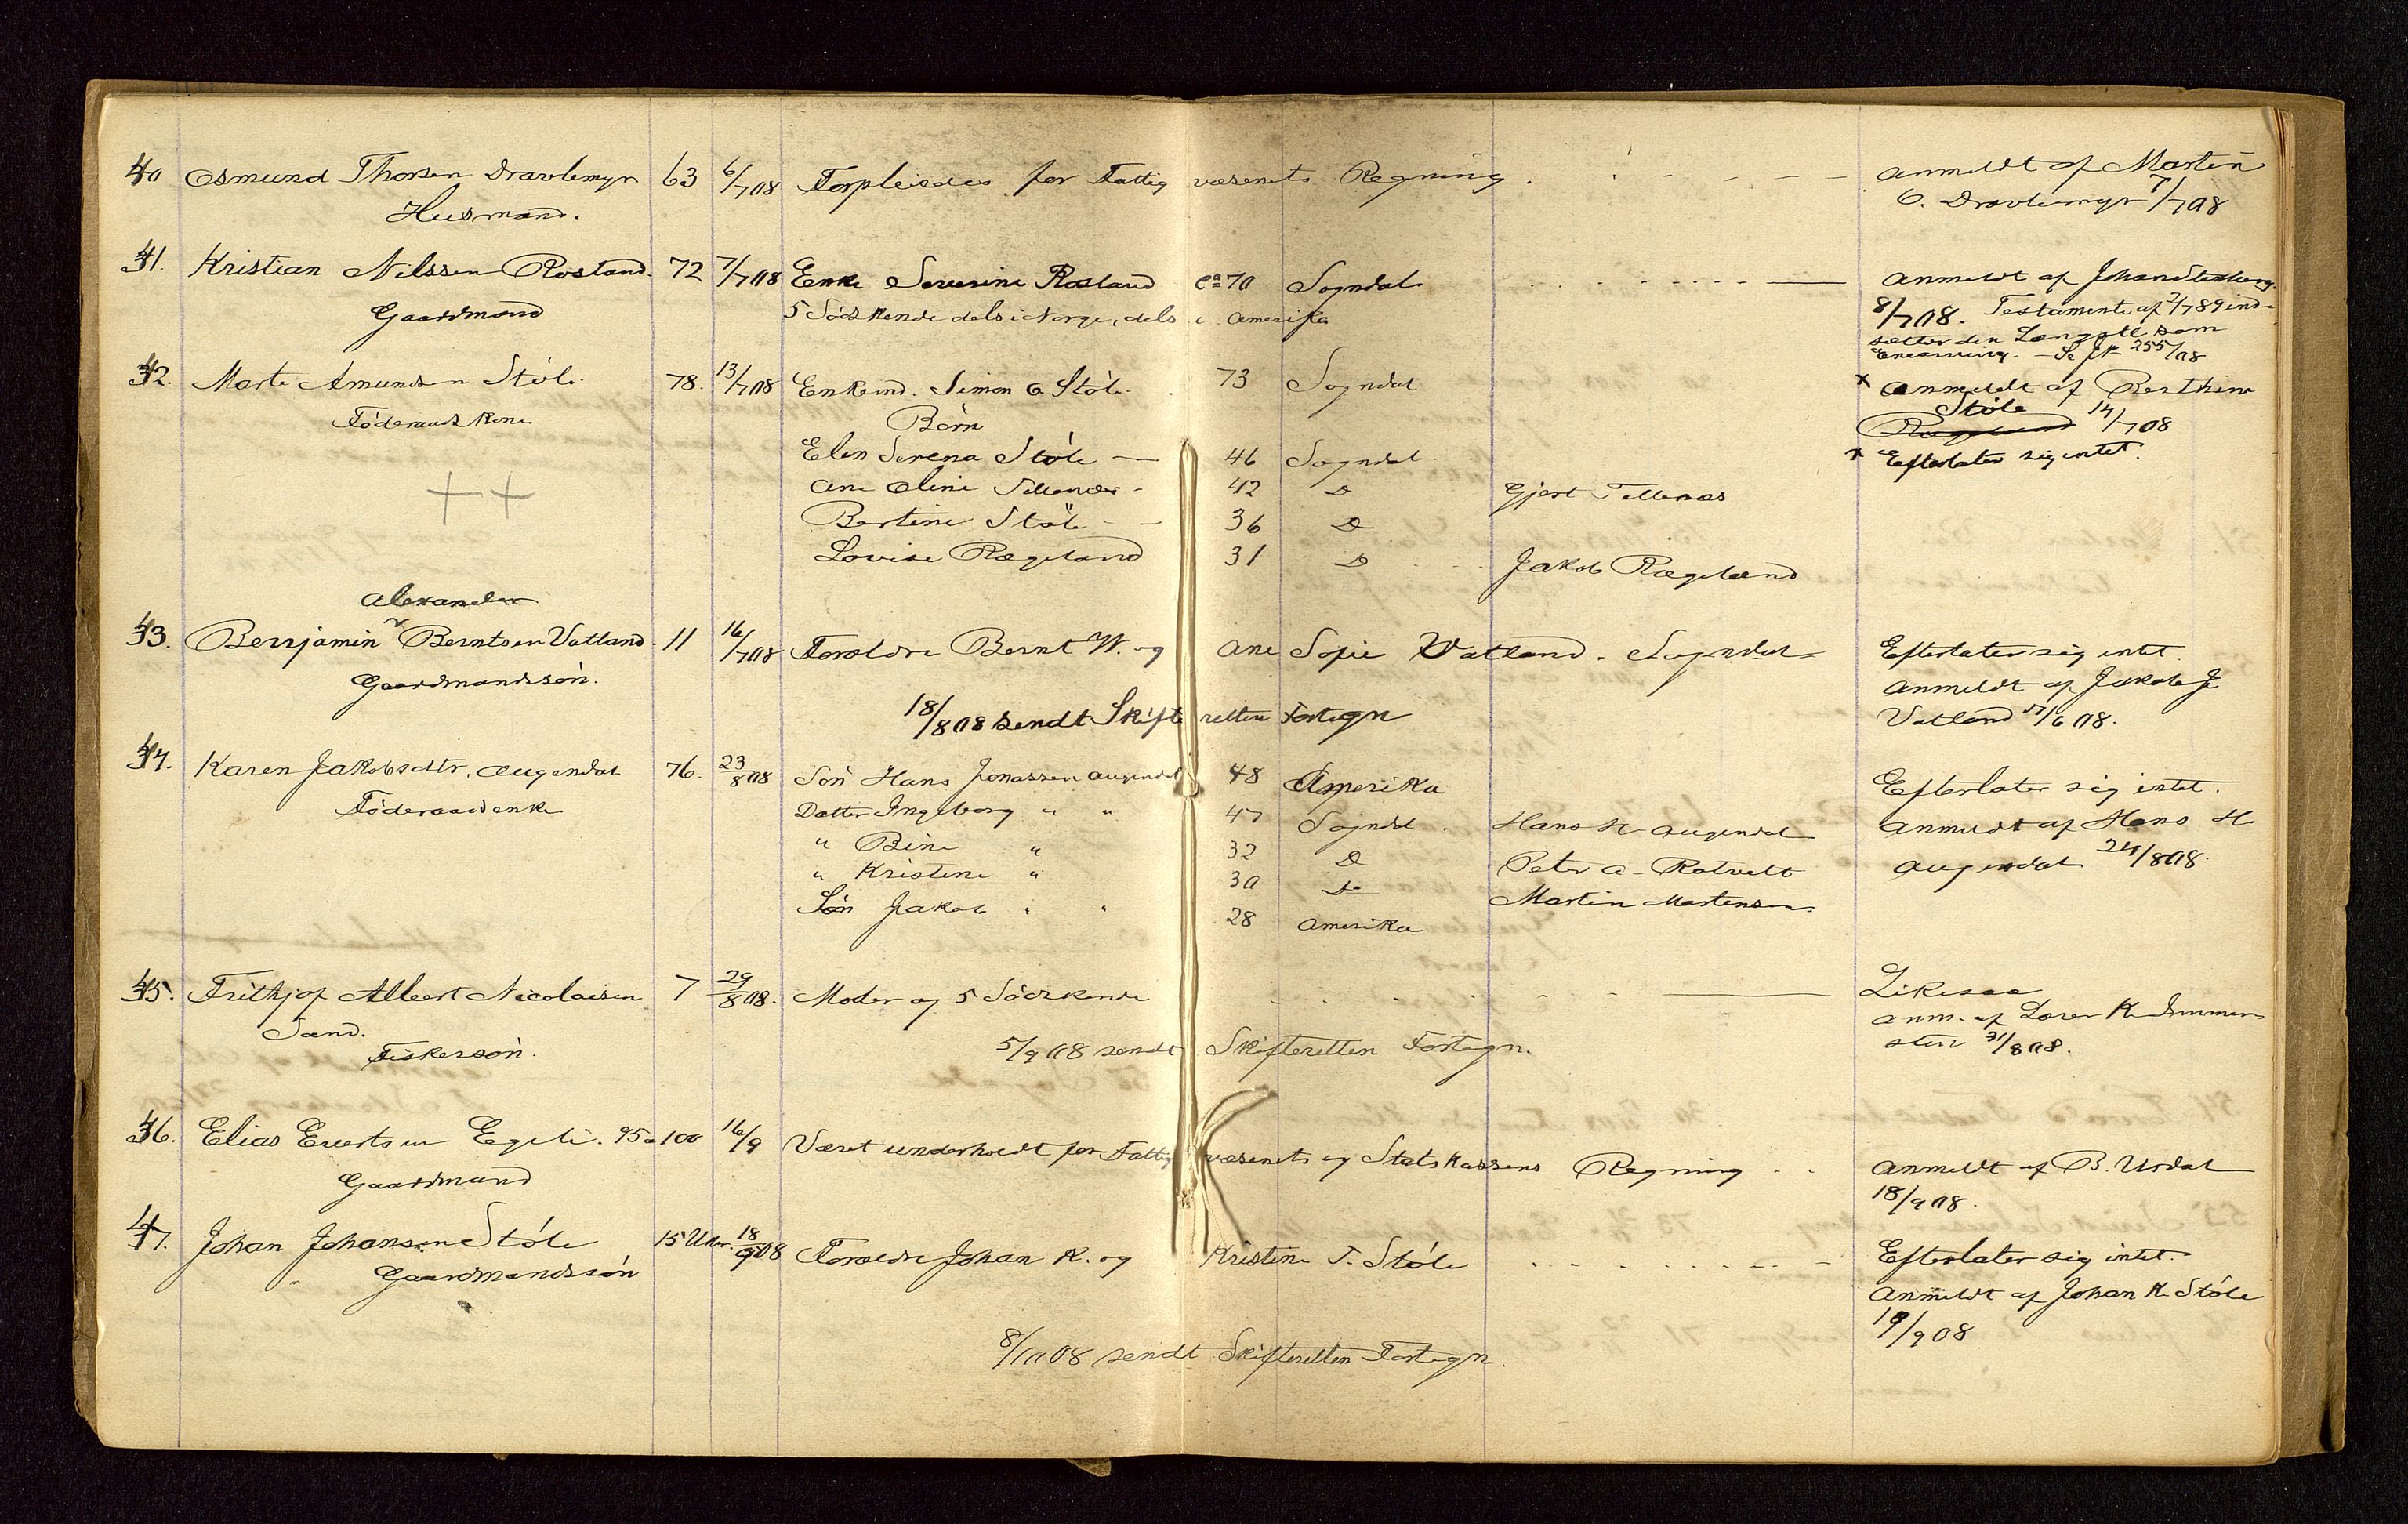 40 Osmund Thorsen Dravlemyr 63 6/7 08 Forpleiedes for Fattigvæsenets Regning. Anmeldt af Martin
Husmand. O. Dravlemyr 7/7 08
41. Kristian Nilssen Rosland. 72 7/7 08 Enke Severine Rosland ca 70 Sogndal Anmeldt af Johan Stenberg
Gaardmand 5 Södskende dels i Norge, dels i Amerika 8/7 08. Testamente af 2/7 89 ind-
sætter den Længstl. som
Enearving. - Se JN 255/08
42. Marte Amundsen Stöle. 78. 13/7 08 Enkemd. Simon O. Stöle. 73 Sogndal x Anmeldt af Berthine
Föderaadskone Börn Stöle
Rægeland 14/7 08
Elen Serena Stöle — 46 Sogndal x Efterlater sig intet.
++ Ane Oline Tellenæs - 42 Do Gjert Tellenæs
Bertine Stöle - - 36 Do
Lovise Rægeland 31 Do Jakob Rægeland
Alexander
43. Benjamin v Berntsen Vatland. 11 16/7 08 Forældre Bernt W. og Ane Sofie Vatland. Sogndal Efterlater sig intet.
Gaardmandssön. Anmeldt af Jakob J.
18/8 08 sendt Skifteretten Fortegn Vatland 17/6 08.
44. Karen Jakobsdtr. Augendal 76. 23/8 08 Sön Hans Jonassen Augendal 48 Amerika Efterlater sig intet.
Föderaadenke Datter Ingeborg " " 47 Sogndal. Hans H. Augendal Anmeldt af Hans H
" Bine " 32 Do Peter A. Rotvelt Augendal 24/8 08.
" Kristine " 30 Do Martin Martensen.
Sön Jakob " " 28 Amerika
45. Frithjof Albert Nicolaisen 7 29/8 08. Moder og 5 Södskende Likesaa
Sand. anm. af Lærer K.
Fiskersön. 5/9 08 sendt Skifteretten Fortegn. 31/8 08.
46. Elias Evertsen Egeli. 95 a 100 16/9 Været underholdt for Fattigvæsenets og Statskassens Regning Anmeldt af B. Urdal
Gaardmand 18/9 08.
47. Johan Johansen Stöle 15 Uker. 18/9 08 Forældre Johan K. og Kristine T. Stöle Efterlater sig intet.
Gaardmandssön Anmeldt af Johan K. Stöle
19/9 08
8/10 08 sendt Skifteretten Fortegn.